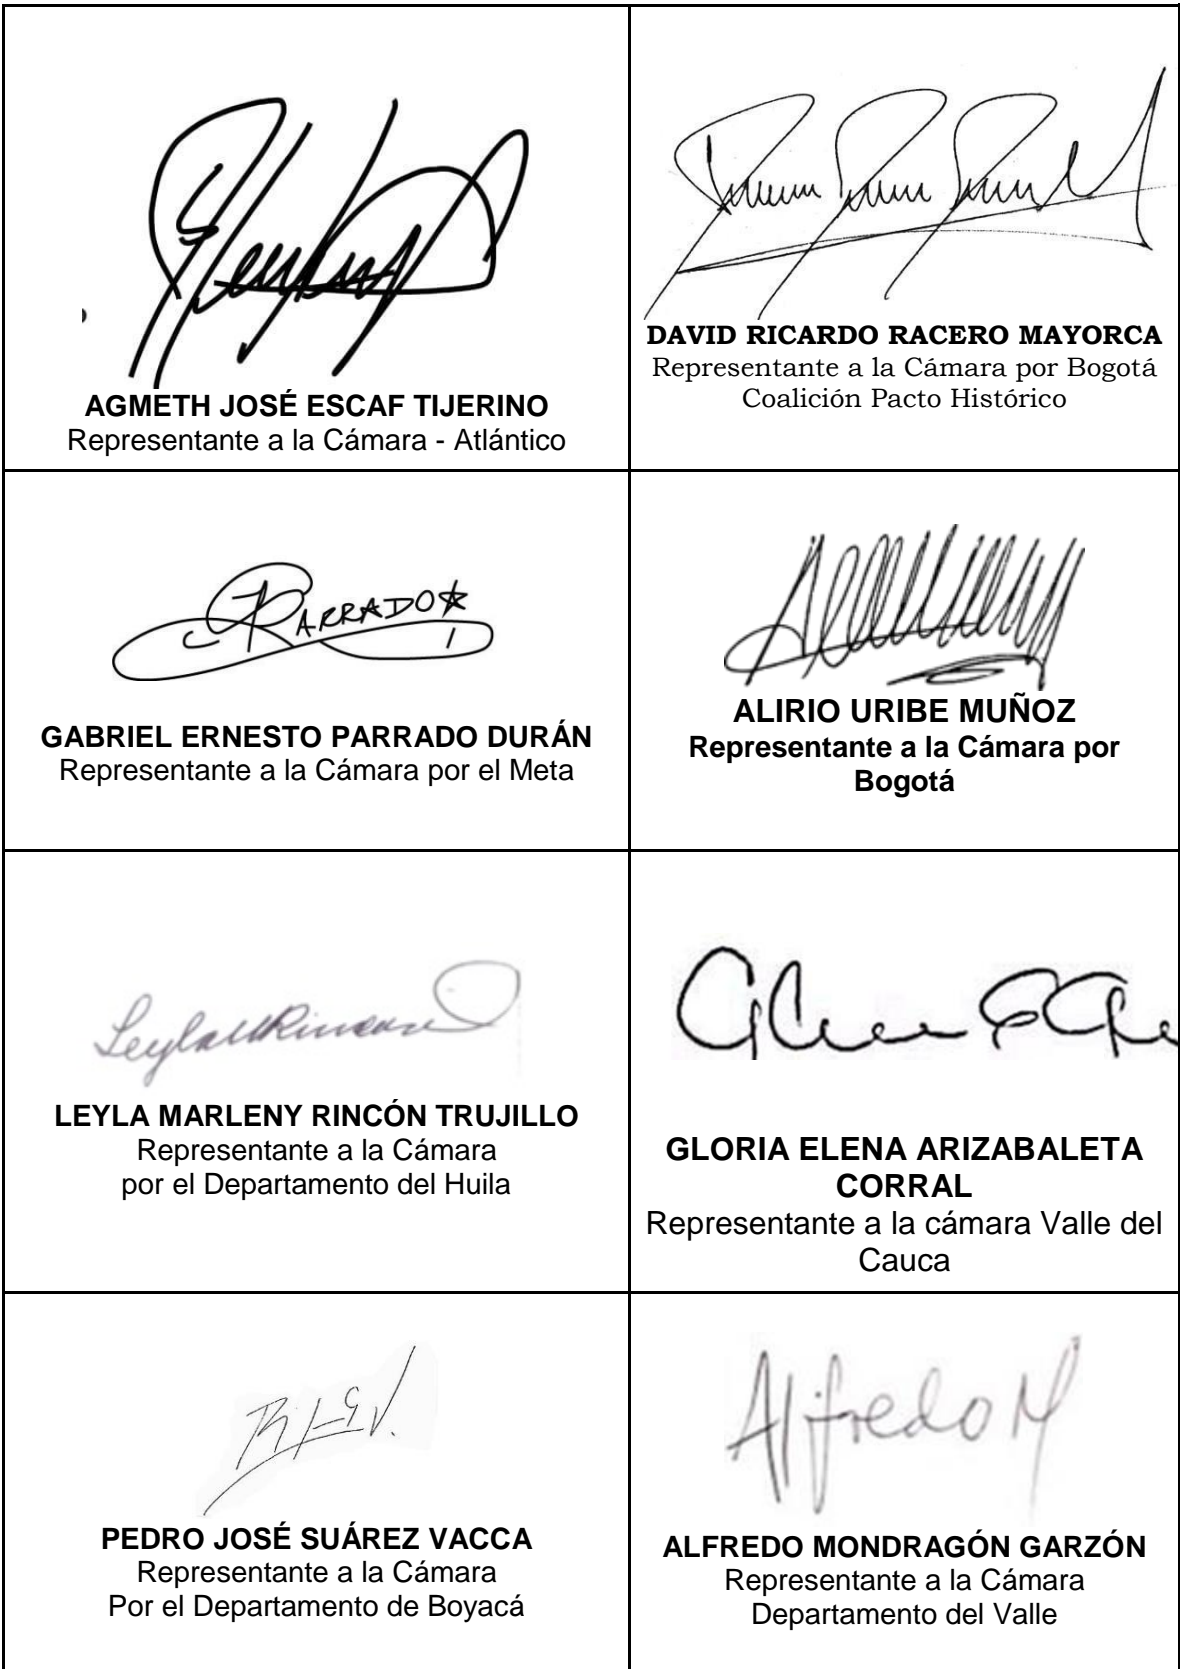 AGMETH JOSÉ ESCAF TIJERINO
Representante a la Cámara - Atlántico
DAVID RICARDO RACERO MAYORCA
Representante a la Cámara por Bogotá
Coalición Pacto Histórico
PARRADO
GABRIEL ERNESTO PARRADO DURÁN
Representante a la Cámara por el Meta
ALIRIO URIBE MUÑOZ
Representante a la Cámara por
Bogotá
LeylaMRincon
LEYLA MARLENY RINCÓN TRUJILLO
Representante a la Cámara
por el Departamento del Huila
GLORIA ELENA ARIZABALETA
CORRAL
Representante a la cámara Valle del
Cauca
PEDRO JOSÉ SUÁREZ VACCA
Representante a la Cámara
Por el Departamento de Boyacá
Alfredo M
ALFREDO MONDRAGÓN GARZÓN
Representante a la Cámara
Departamento del Valle